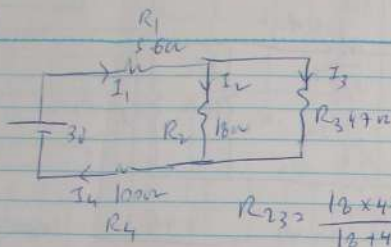 R1
5.6Ω
I1 I2 I3
R2 18Ω R3 47Ω
I4 100Ω
R4
R23 = 18 × 4
18 + 4